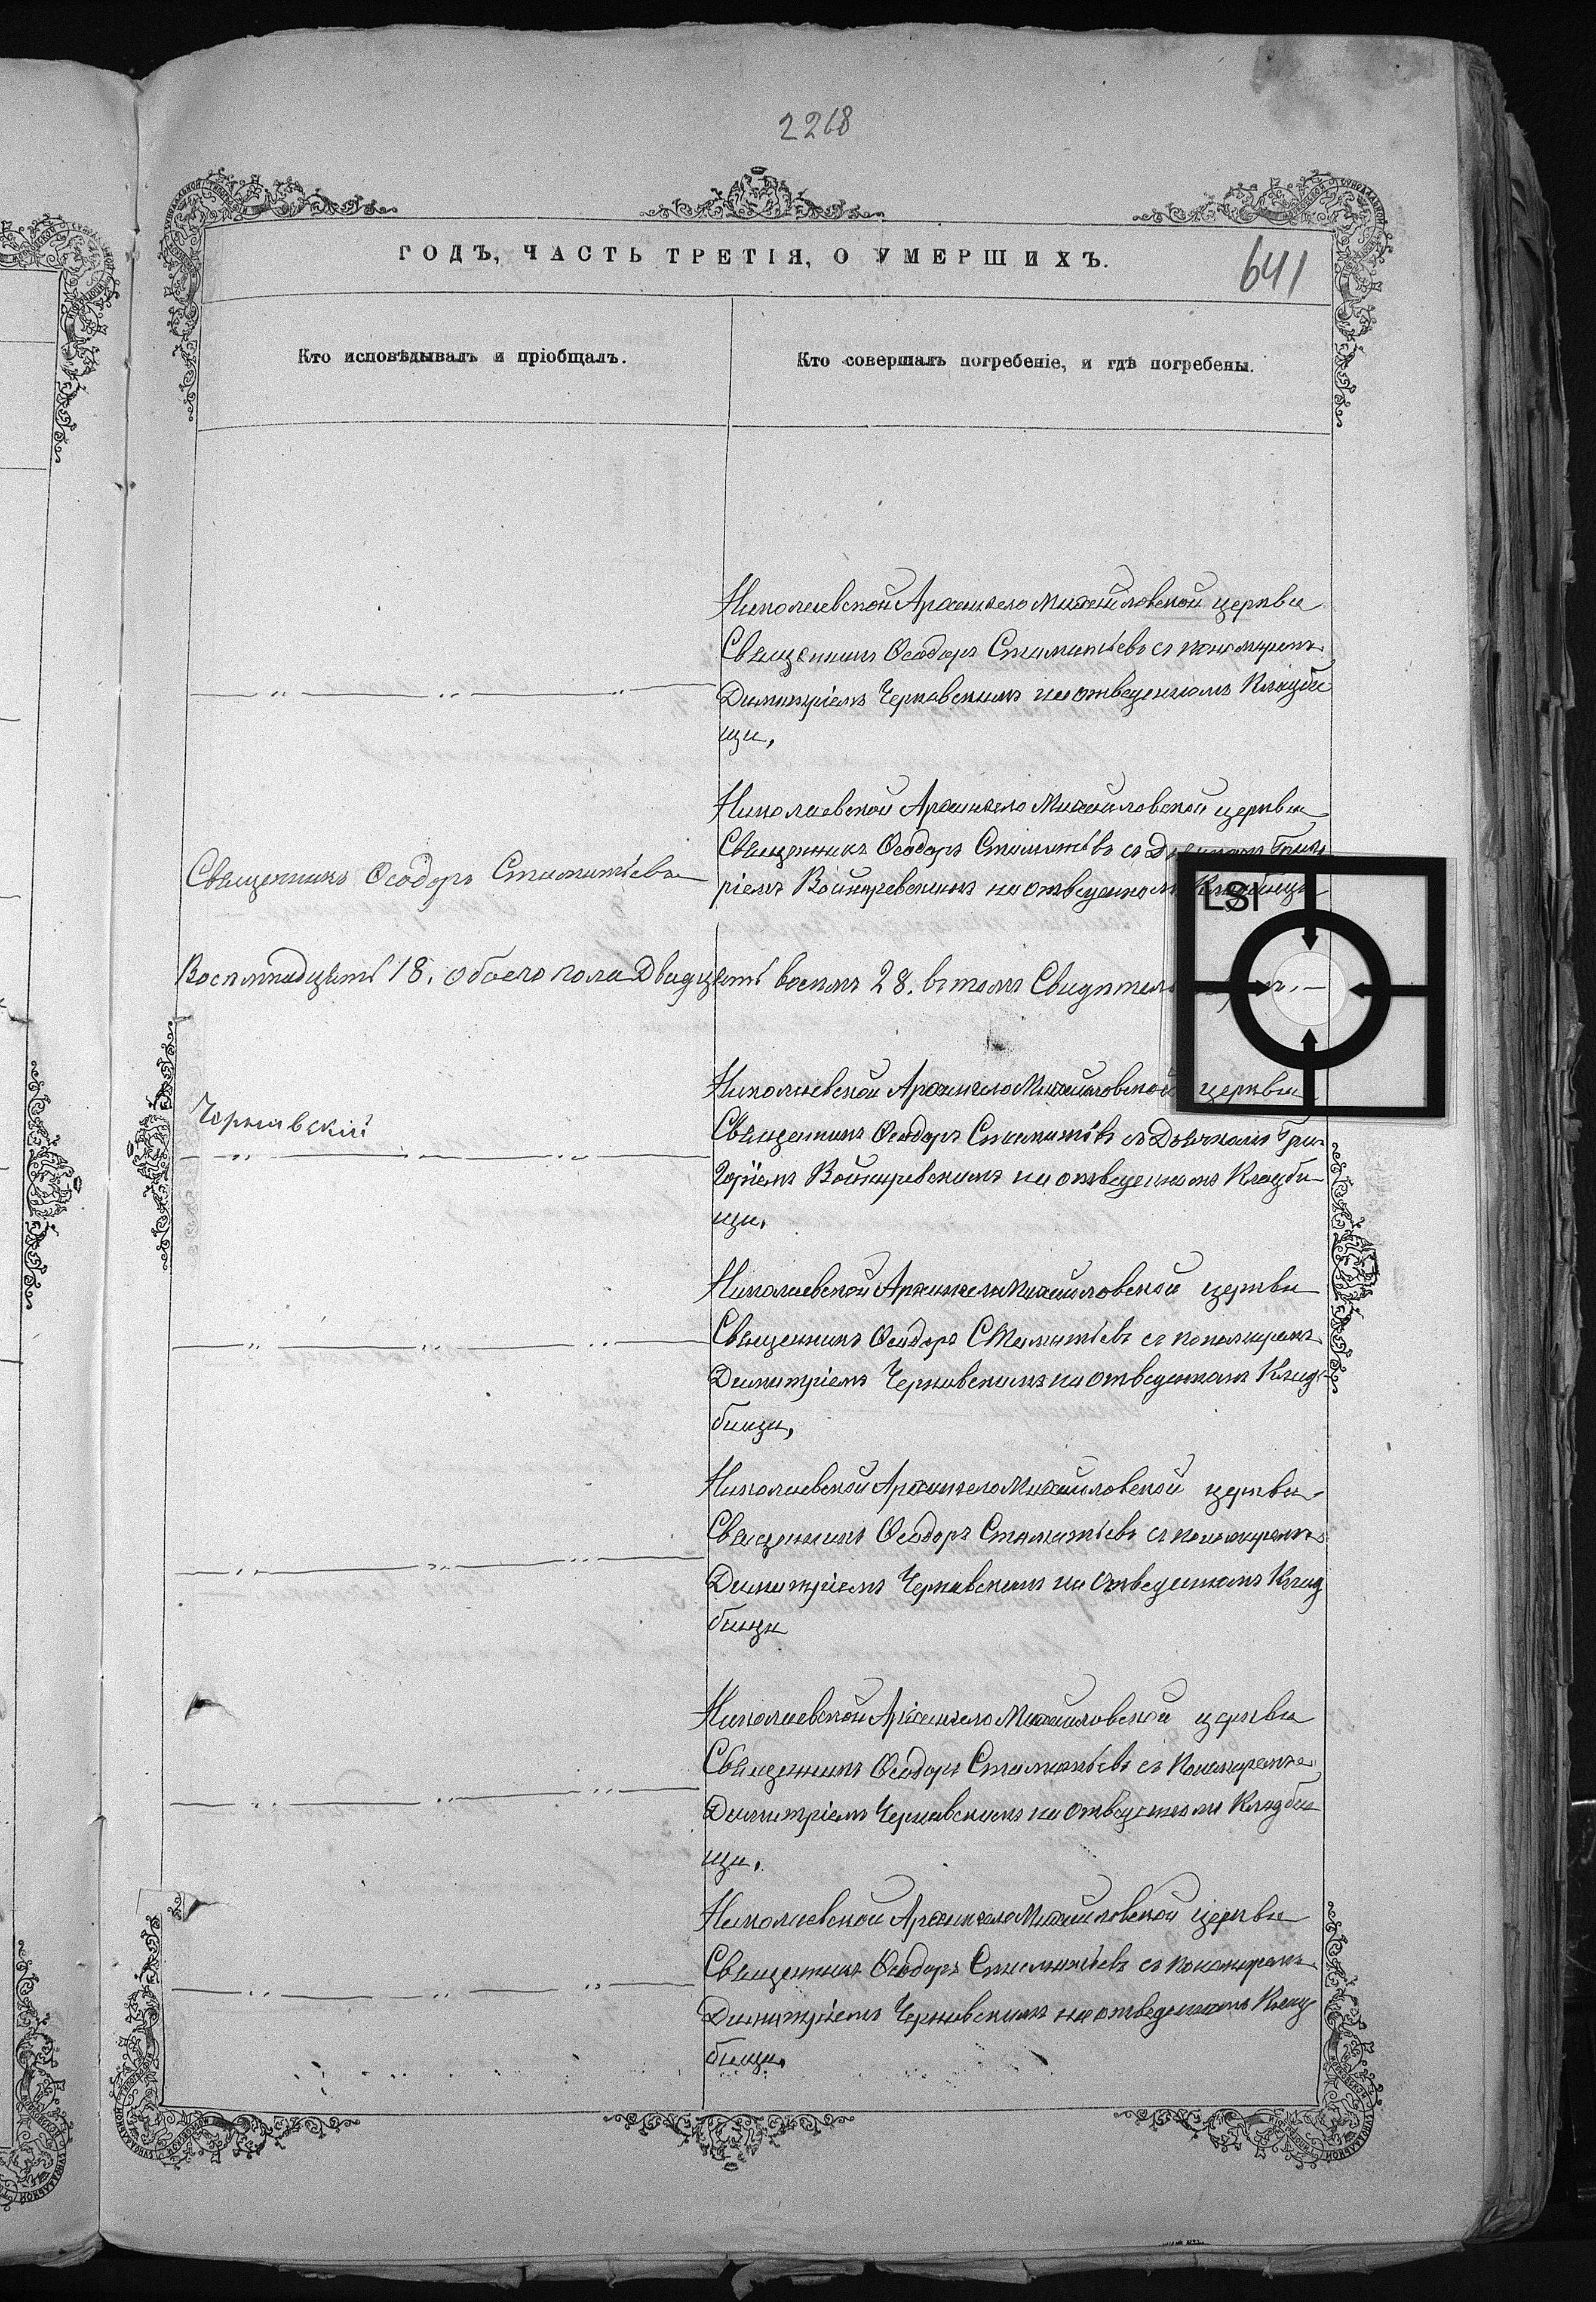 2268
ГОДЪ, ЧАСТЬ ТРЕТІЯ, О УМЕРШИХЪ.
641
Кто исповѣдывалъ и пріобщалъ.
Кто совершалъ погребеніе, и гдѣ погребены.
Николаевской Архангело Михайловской церкви
Священникъ Ѳеодоръ Стаматьевъ съ пономаремъ
Димитріемъ Чернявскимъ на отведенномъ Кладби
щи,
Николаевской Архангело Михайловской церкви
Священникъ Ѳеодоръ Стаматьевъ съ
Священникъ Ѳеодоръ Стаматьевъ
ріемъ Войнаревскимъ на отведенномъ Кладбищи
LSI
Восемнадцать 18. обоего пола Двадцать восемъ 28. въ томъ
Николаевской Архангело Михайловской церкви
Чернявскій
Священникъ Ѳеодоръ Стаматьевъ съ Дьячкомъ Гри-
горіемъ Войнаревскимъ на отведенномъ Кладби-
щи.
Николаевской Архангело Михайловской церкви
Священникъ Ѳеодоръ Стаматьевъ съ пономаремъ
Димитріемъ Чернявскимъ на отведенномъ Клад-
бищи,
Николаевской Архангело Михайловской церкви
Священникъ Ѳеодоръ Стаматьевъ съ пономаремъ
Димитріемъ Чернявскимъ на Отведенномъ Клад
бищи
Николаевской Архангело Михайловской церкви
Священникъ Ѳеодоръ Стаматьевъ съ Пономаремъ
Димитріемъ Чернявскимъ на отведенномъ Кладби
щи.
Николаевской Архангело Михайловской церкви
Священникъ Ѳеодоръ Стаматьевъ съ пономаремъ
Димитріемъ Чернявскимъ на отведенномъ Клад
бищи.